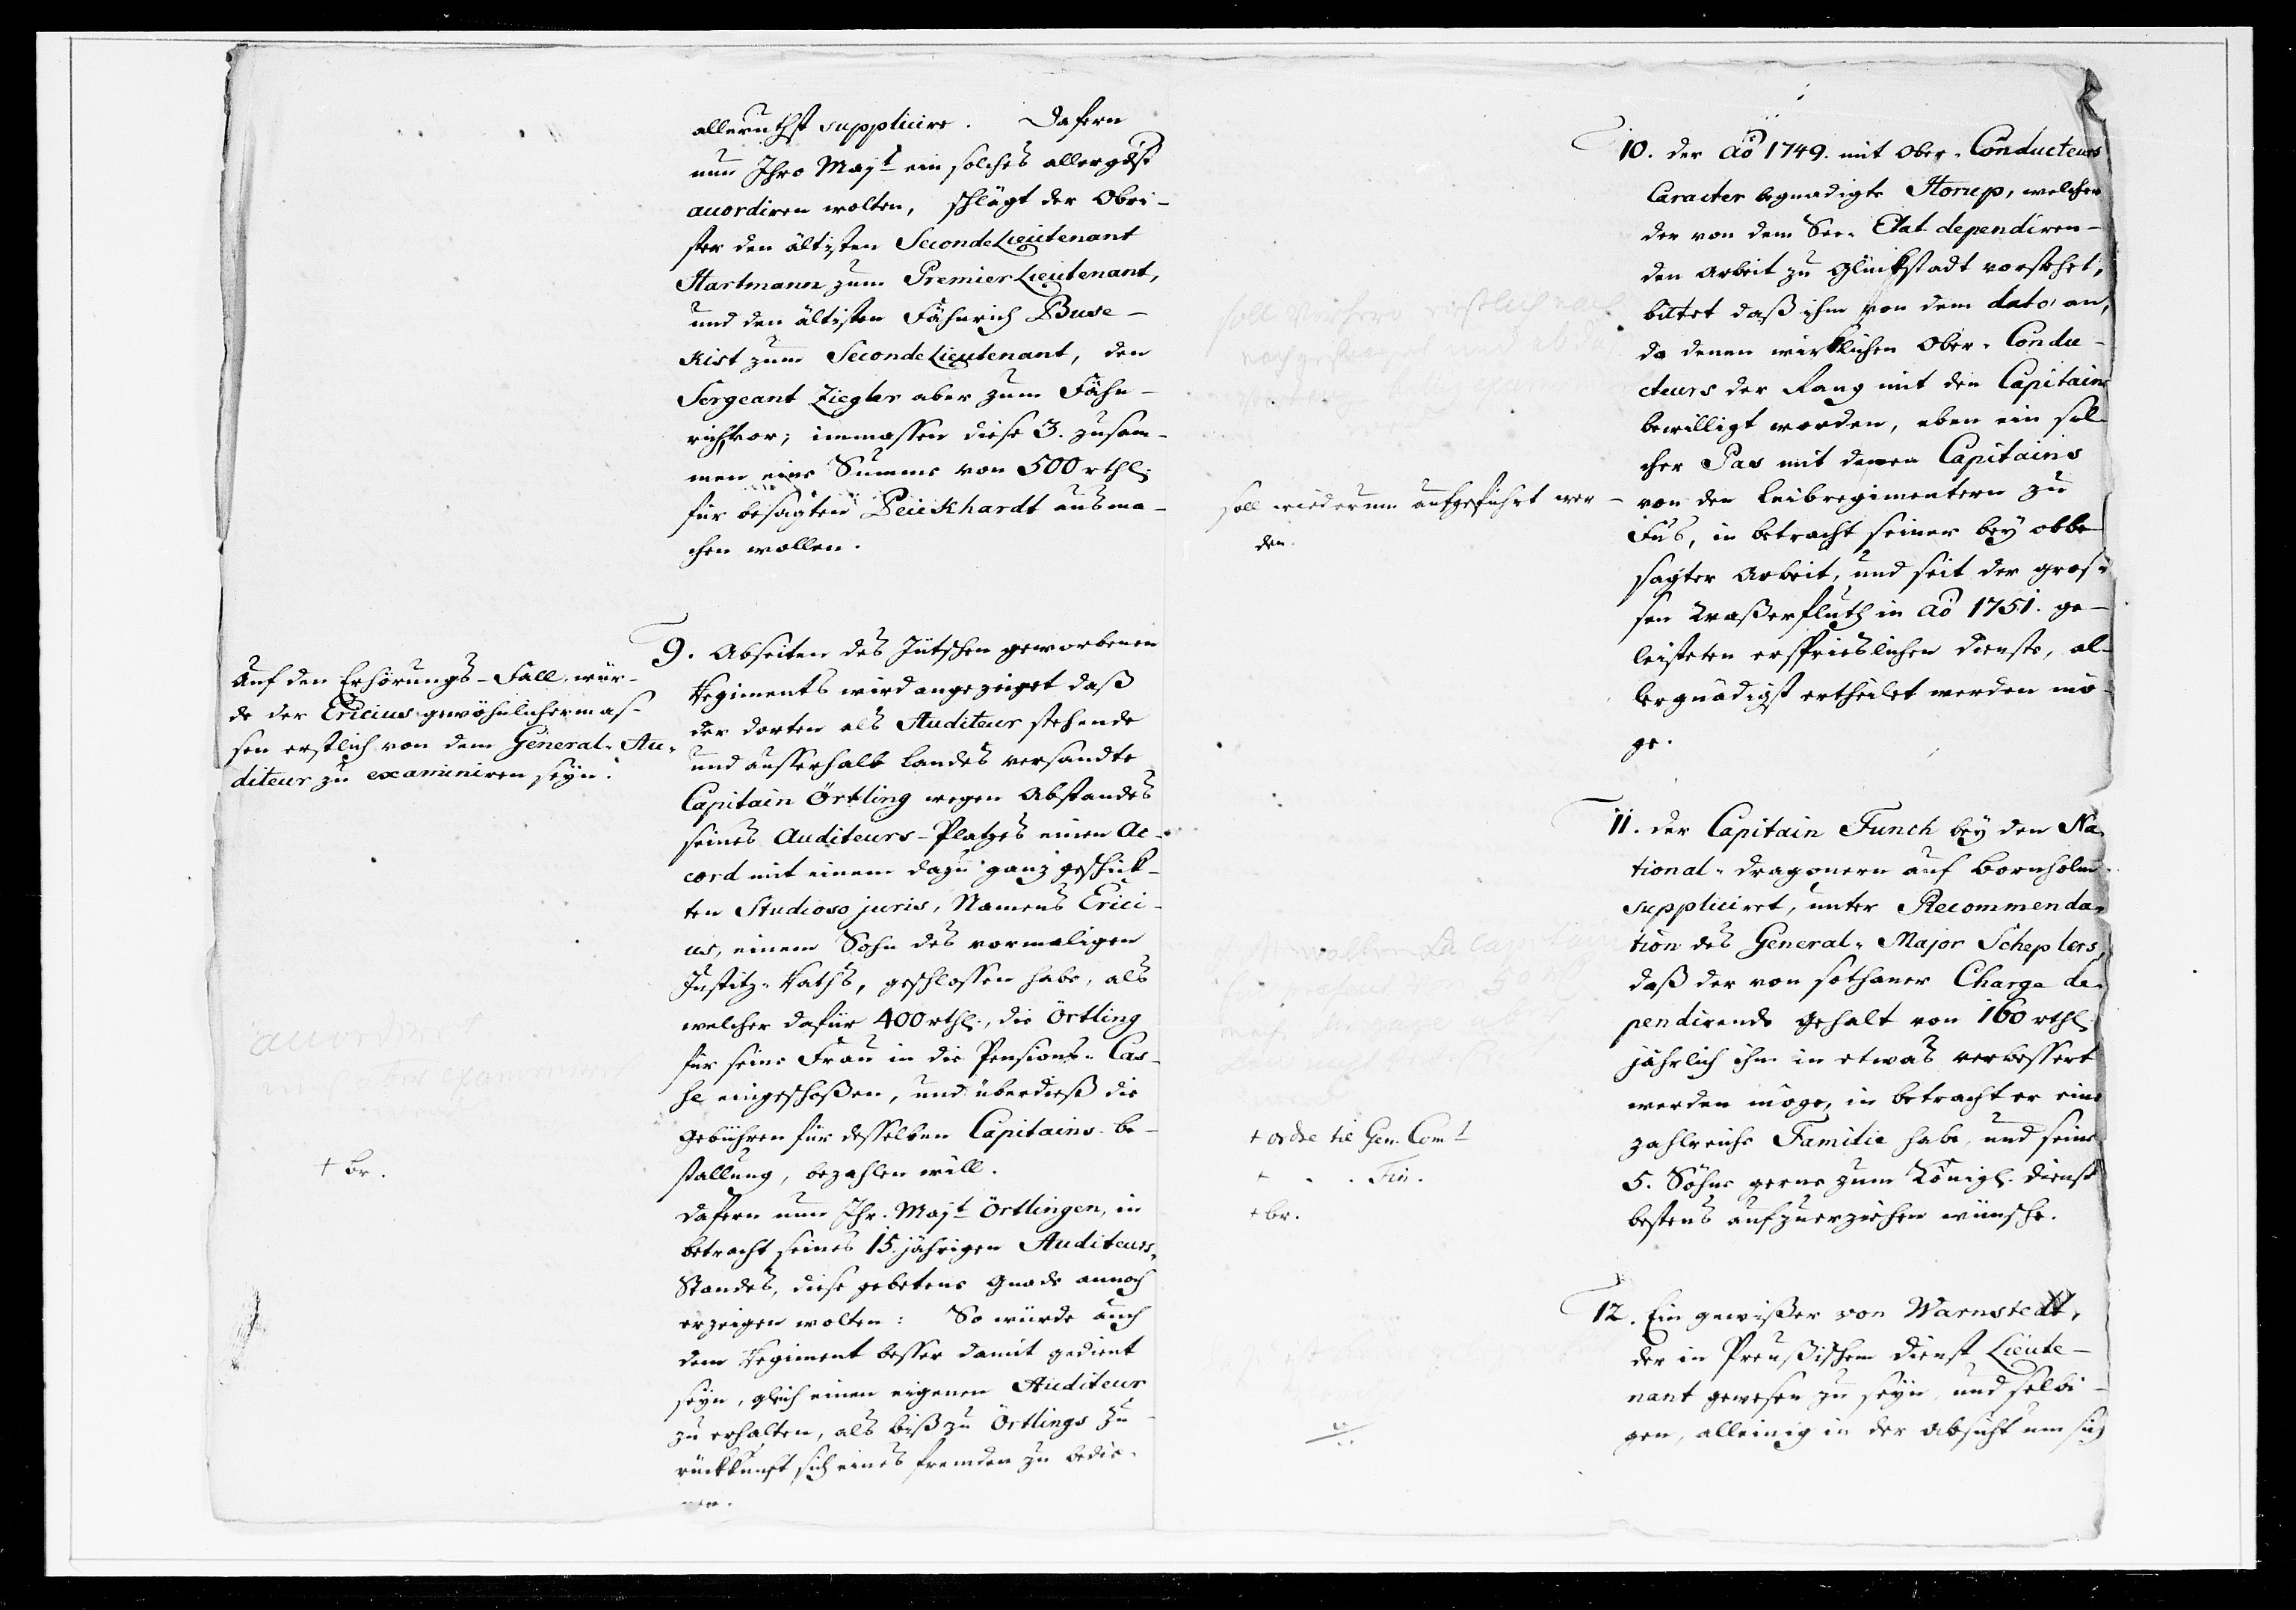 alleruthst suppliciret. Dafern
nun Ihro Majt ein solches allergdst
accordiren wolten, schlägt der Obri-
ster den ältisten SecondeLieutenant
Hartmann zum PremierLieutenant,
und den ältisten Fähnrich Buse-
Kist zum SecondeLieutenant, den
Sergeant Ziegler aber zum Fähn-
rich vor; immassen diese 3. zusam-
men eine Summe von 500 rthl.
für besagten Peuckhardt ausma-
chen wollen.
Auf den Erhörungs-Fall, wür-
de der Ericius gewöhnlichermas-
sen erstlich von dem General-Au-
diteur zu examiniren seyn.
accordirt
examiniret
+ br.
9. Abseiten des Jütschen geworbenen
Regiments wird angezeiget daß
der dorten als Auditeur stehende
und ausserhalb Landes versandte
Capitain Örtling wegen Abstandes
seines Auditeurs-Platzes einen Ac-
cord mit einem dazu ganz geschick-
ten Studioso juris, Namens Erici-
us, einem Sohn des vormaligen
Justitz-Raths, geschlossen habe, als
welcher dafür 400 rthl., die Örtling
für seine Frau in die Pensions-Cas-
se eingeschoßen, und überdieß die
Gebühren für desselben Capitains-be-
stallung, bezahlen will.
Dafern nun Ihr. Majt Örtlingen, in
betracht seines 15. jährigen Auditeurs-
Standes, diese gebetene Gnade annoch
erzeigen wolten: So würde auch
dem Regiment besser damit gedient
seyn, gleich einen eigenen Auditeur
zu erhalten, als biß zu Örtlings Zu-
rückkunft sich eines fremden zu bedie-
nen.
10. Der Aõ 1749. mit Ober-Conducteurs
Caracter begnadigte Storup, welcher
der von dem See-Etat dependiren-
den Arbeit zu Glückstadt vorstehet,
bittet daß ihm von dem dato an,
da denen wircklichen Ober-Condu-
cteurs der Rang mit den Capitains
bewilligt worden, eben ein sol-
cher Pas mit denen Capitains
von den Leibregimentern zu
Fus, in betracht seiner bey obbe-
sagter Arbeit, und seit der gros-
sen Waßerfluth in Aõ 1751. ge-
leisteten ersprieslichen Dienste, al-
lergnädigst ertheilet werden mö-
ge.
soll wiederum aufgeführt wer-
den.
11. Der Capitain Funch bey den Na-
tional-Dragonern auf Bornholm
suppliciret, unter Recommenda-
tion des General-Major Scheplers,
daß der von sothaner Charge de-
pendirende Gehalt von 160 rthl.
jährlich ihm in etwas verbessert
werden möge, in betracht er eine
zahlreiche Familie habe, und seine
5. Söhne gerne zum Königl. Dienst
bestens aufzuerziehen wünsche.
+ ordre til Gen. Comt
+ . . Fin.
+ br.
12. Ein gewißer von Warnstedt,
der in Preußischem Dienst Lieute-
nant gewesen zu seyn, und selbi-
gen, alleinig in der Absicht um sich